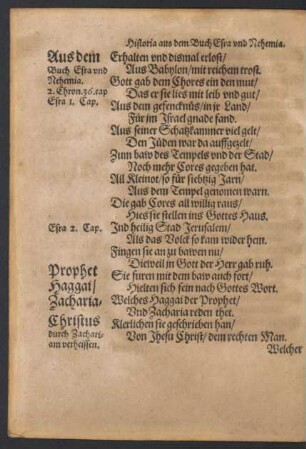 Historia aus dem Buch Esra vnd Nehemia.
Aus dem
Buch Esra vnd
Nehemia.
2. Chron. 36. cap
Esra 1. Cap.
Erhalten vnd dismal erlost/
Aus Babylon/ mit reichem trost.
Gott gab dem Chores ein den mut/
Das er sie lies mit leib vnd gut/
Aus dem gefencknüs/ in jr Land/
Für im Israel gnade fand.
Aus seiner Schatzkammer viel gelt/
Den Jüden war da auffgezelt/
Zum baw des Tempels vnd der Stad/
Noch mehr Cores gegeben hat.
All Kleinot/ so für siebtzig Jarn/
Aus dem Tempel genomen warn.
Die gab Cores all willig raus/
Hies sie stellen ins Gottes Haus,
Esra 2. Cap.
Ind heilig Stad Jerusalem/
Als das Volck so kam wider hem.
Fingen sie an zu bawen nu/
Dieweil in Gott der Herr gab ruh.
Prophet
Haggai/
Zacharia-
Christus
durch Zachari-
am verheissen.
Sie furen mit dem baw auch fort/
Hielten sich fein nach Gottes Wort.
Welches Haggai der Prophet/
Vnd Zacharia reden thet.
Klerlichen sie geschrieben han/
Von Jhesu Christ/ dem rechten Man.
Welcher